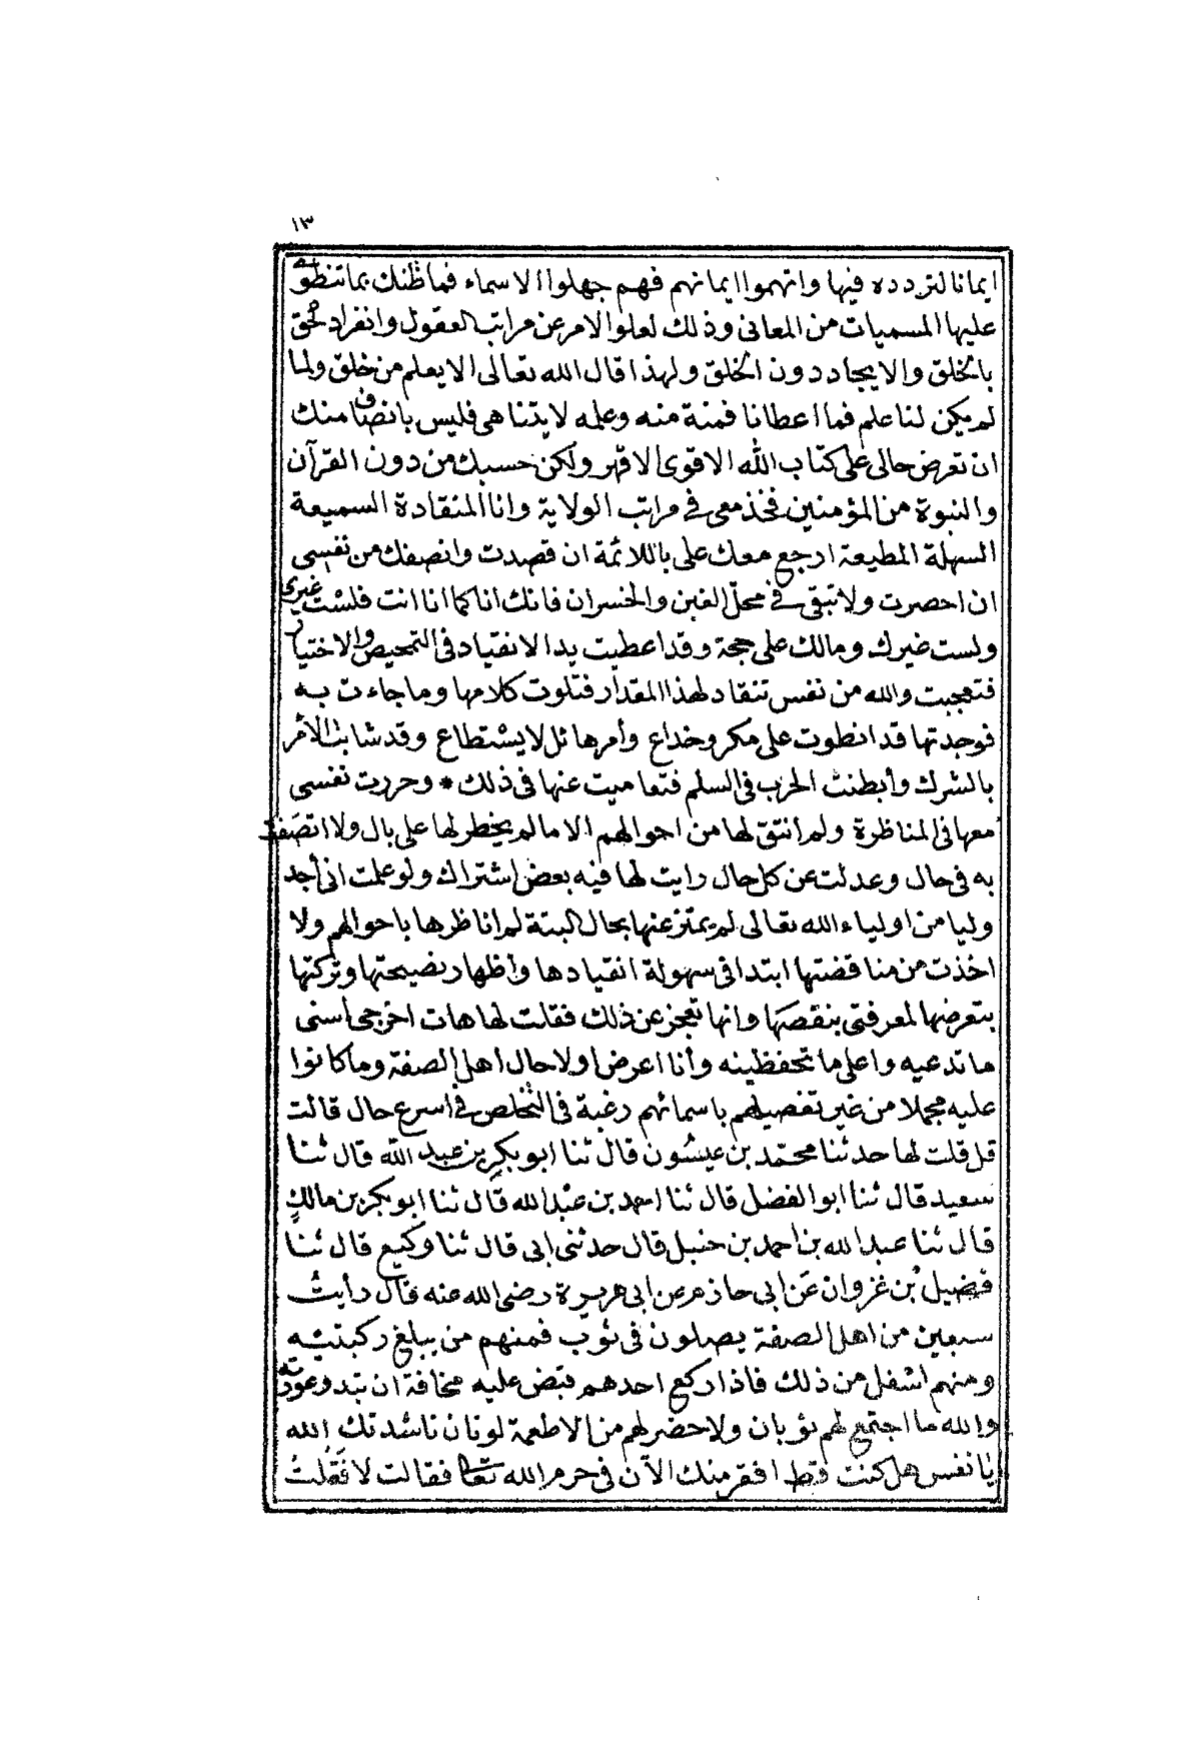 ١٣
ايمانا لتردده فيها واتهموا ايمانهم فهم جهلوا الاسماء فما ظنك بما تنطوى
عليها المسميات من المعانى وذلك لعلو الامر عن مراتب العقول وانفراد الحق
بالخلق والايجاد دون الخلق ولهذا قال الله تعالى الا يعلم من خلق ولما
لم يكن لنا علم فما اعطانا فمنة منه وعلمه لا يتناهى فليس بانصاف منك
ان تعرض حالى على كتاب الله الاقوى الاقهر ولكن حسبك من دون القرآن
والنبوة من المؤمنين فخذ معى فى مراتب الولاية وانا المنقادة السميعة
السهلة المطيعة ارجع معك على باللائمة ان قصدت وانصفك من نفسى
ان احصرت ولا تبقى فى محل الغبن والخسران فانك انا كما انا انت فلست غيرى
ولست غيرك ومالك على حجة وقد اعطيت يد الانقياد فى التمحيص والاختيار
فتعجبت والله من نفس تنقاد لهذا المقدار فتلوت كلامها وما جاءت به
فوجدتها قد انطوت على مكر وخداع وأمر هائل لا يستطاع وقد شابت الأمر
بالشرك وأبطنت الحرب فى السلم فتعاميت عنها فى ذلك * وحررت نفسى
معها فى المناظرة ولم انتق لها من احوالهم الا ما لم يخطر لها على بال ولا اتصفت
به فى حال وعدلت عن كل حال رايت لها فيه بعض اشتراك ولو علمت انى أجد
وليا من اولياء الله تعالى لم يمتز عنها بحال البتة لم اناظرها باحوالهم ولا
اخذت من مناقضتها ابتدا فى سهولة انقيادها واظهار نصيحتها وتركتها
بتعرضها لمعرفتى بنقصها وانها تعجز عن ذلك فقلت لها هات اخرجى اسنى
ما تدعيه واعلى ما تحفظينه وأنا اعرض اولا حال اهل الصفة وما كانوا
عليه مجملا من غير تفصيلهم باسمائهم رغبة فى التخلص فى اسرع حال قالت
قل قلت لها حدثنا محمد بن عيشون قال ثنا ابو بكر بن عبد الله قال ثنا
سعيد قال ثنا ابو الفضل قال ثنا احمد بن عبد الله قال ثنا ابو بكر بن مالك
قال ثنا عبد الله بن احمد بن حنبل قال حدثنى ابى قال ثنا وكيع قال ثنا
فضيل بن غزوان عن ابى حازم عن ابى هريرة رضى الله عنه قال رأيت
سبعين من اهل الصفة يصلون فى ثوب فمنهم من يبلغ ركبتيه
ومنهم اسفل من ذلك فاذا ركع احدهم قبض عليه مخافة ان تبدو عورته
والله ما اجتمع لهم ثوبان ولا حضر لهم من الاطعمة لونان ناشدتك الله
يا نفس هل كنت قط افقر منك الآن فى حرم الله تعالى فقالت لا فقلت